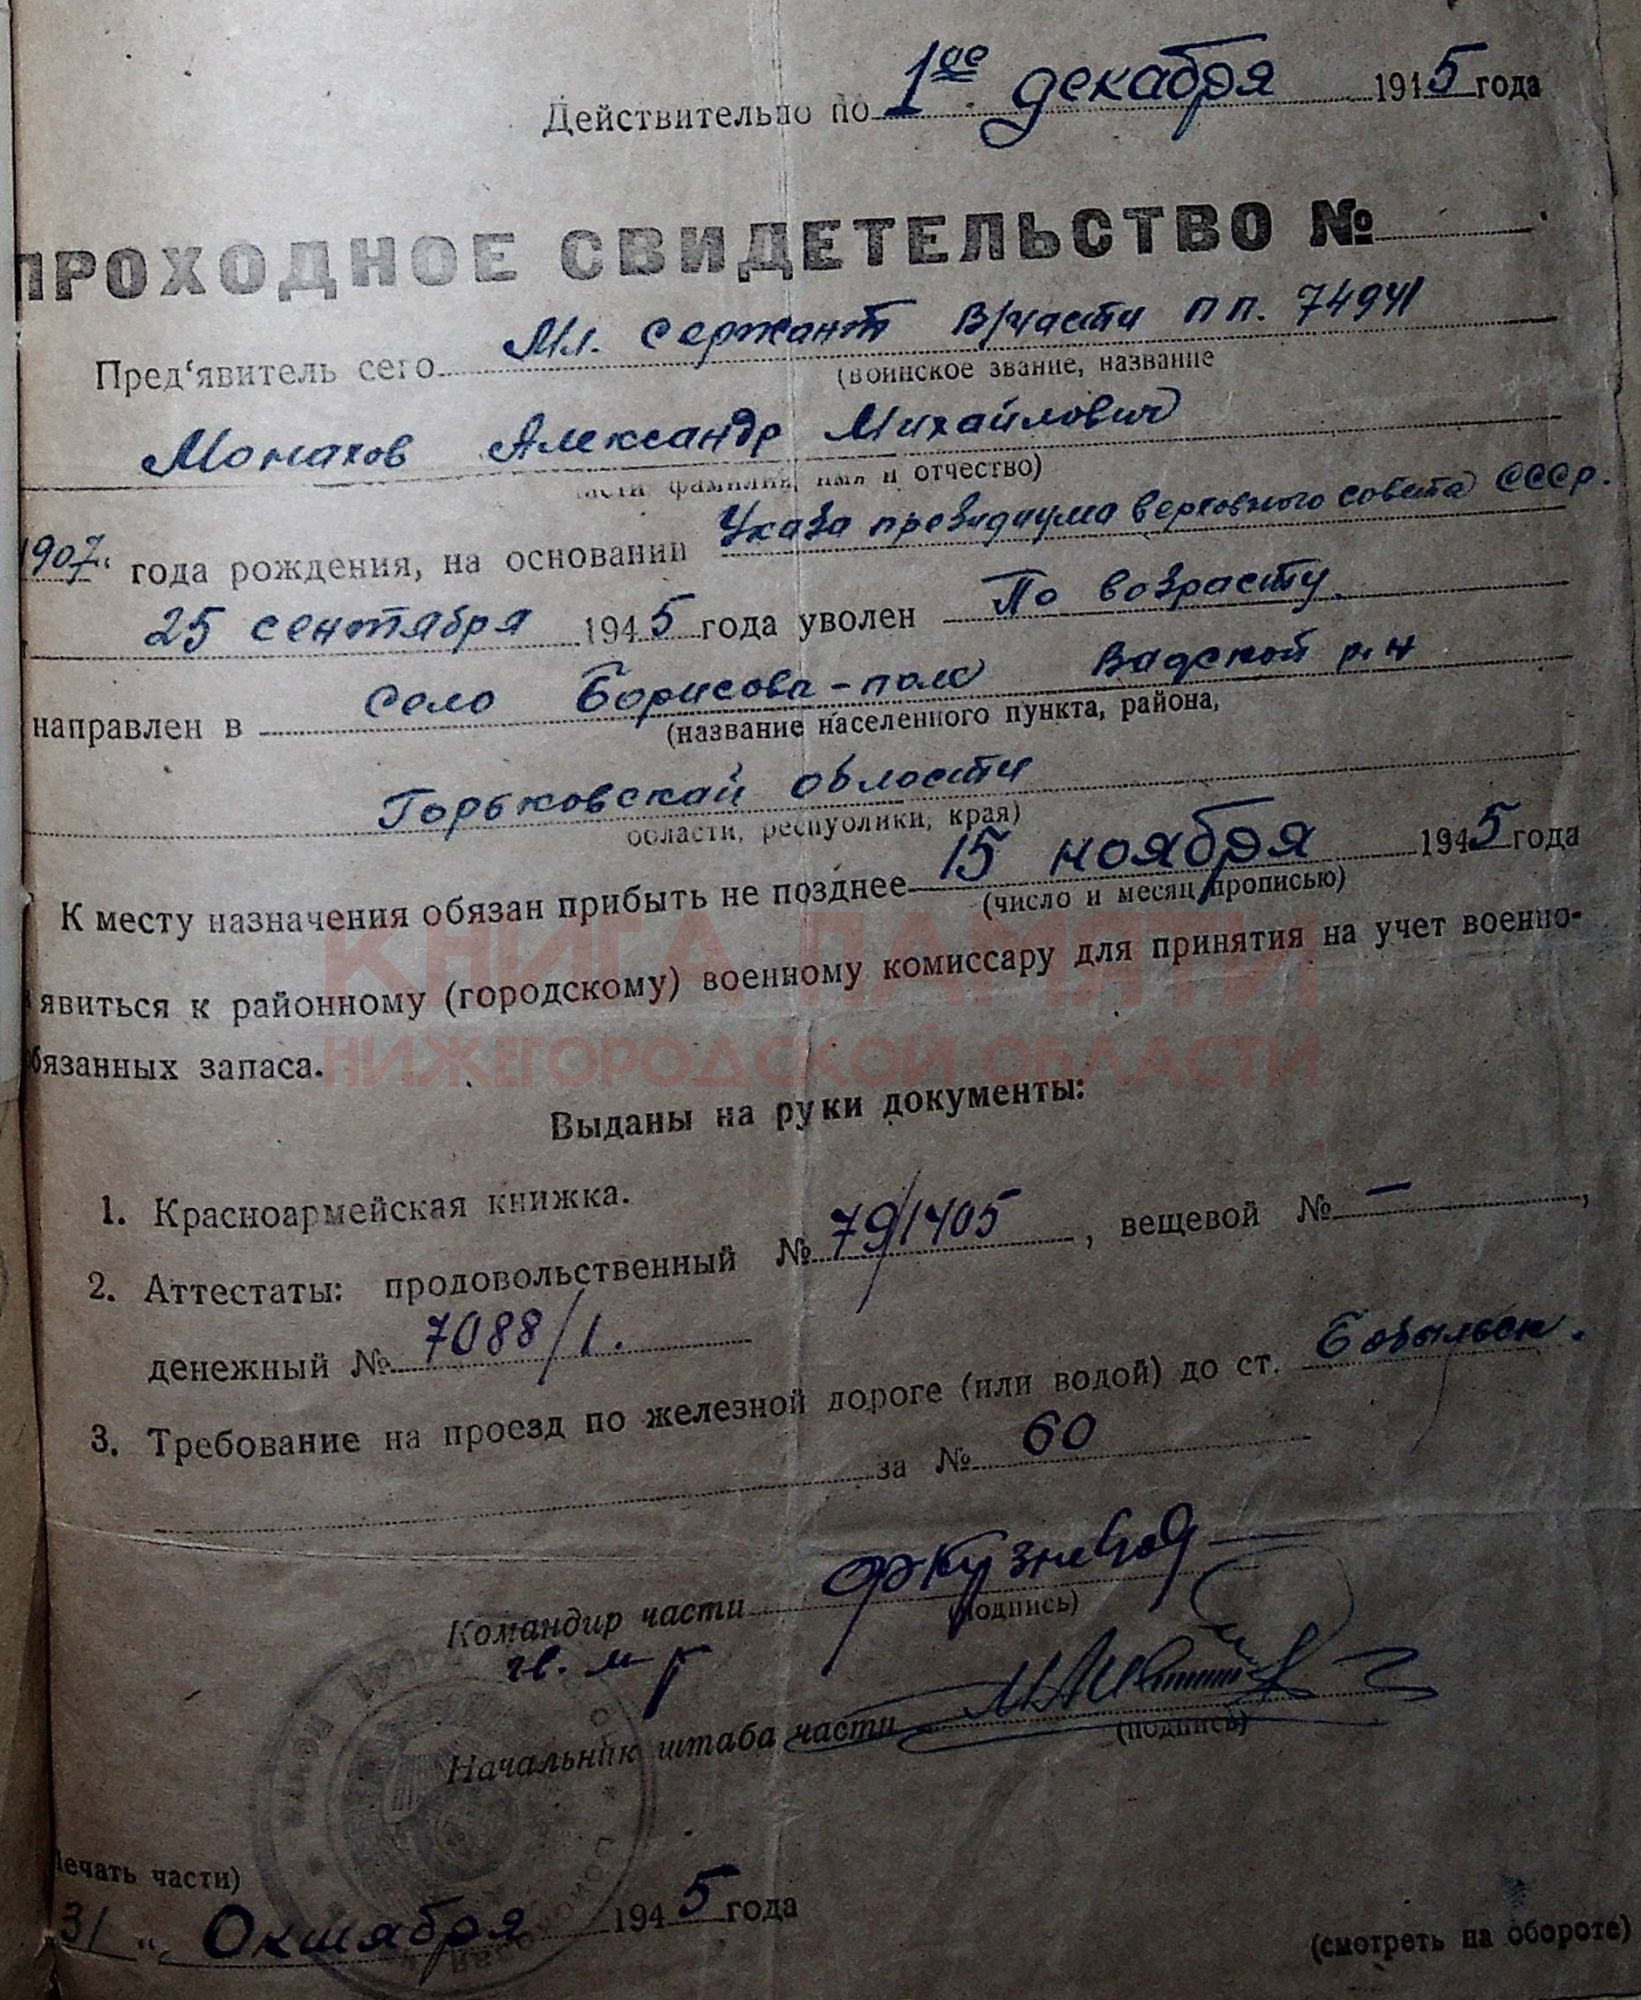 Действительно по 1ое декабря 1945 года
ПРОХОДНОЕ СВИДЕТЕЛЬСТВО №
Пред‘явитель сего Мл. сержант В/части п п. 74941
(воинское звание, название
Момахов Александр Михайлович
части, фамилия, имя и отчество)
1907 года рождения, на основании Указа президиума верховного совета СССР.
25 сентября 1945 года уволен По возрасту.
направлен в село Борисова-поле Вадской р-н
(название населенного пункта, района,
Горьковскай области
области, республики, края)
К месту назначения обязан прибыть не позднее 15 ноября 1945 года
(число и месяц прописью)
явиться к районному (городскому) военному комиссару для принятия на учет военно-
обязанных запаса.
КНИГА ПАМЯТИ
НИЖЕГОРОДСКОЙ ОБЛАСТИ
Выданы на руки документы:
1. Красноармейская книжка.
2. Аттестаты: продовольственный № 79/1405, вещевой № —,
денежный № 7088/1.
3. Требование на проезд по железной дороге (или водой) до ст. Бобыльск.
за № 60
Командир части
(подпись)
гв. м-р
Начальник штаба части
(подпись)
Печать части)
31 „ Октября 1945 года
(смотреть на обороте)